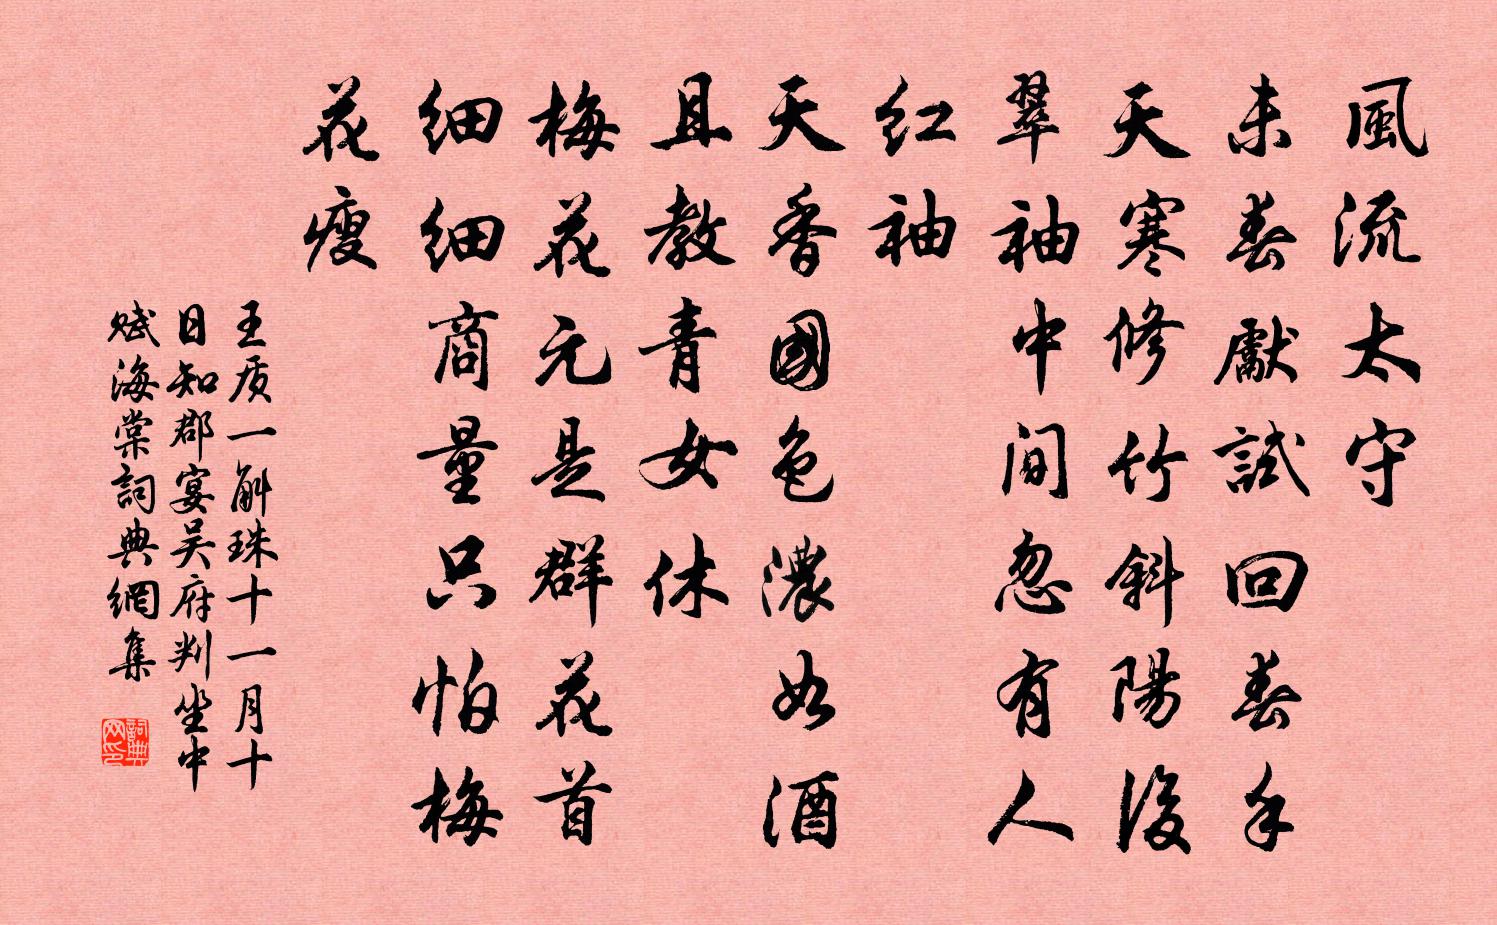 風流太守
未春獻試回春手
天寒修竹斜陽後
翠袖中间忽有人
红袖
天香國色濃如酒
且教青女休
梅花元是群花首
細細商量只怕梅
花瘦
王质一斛珠十一月十
日知郡宴吴府判坐中
赋海棠詞典網集
詞典
网印